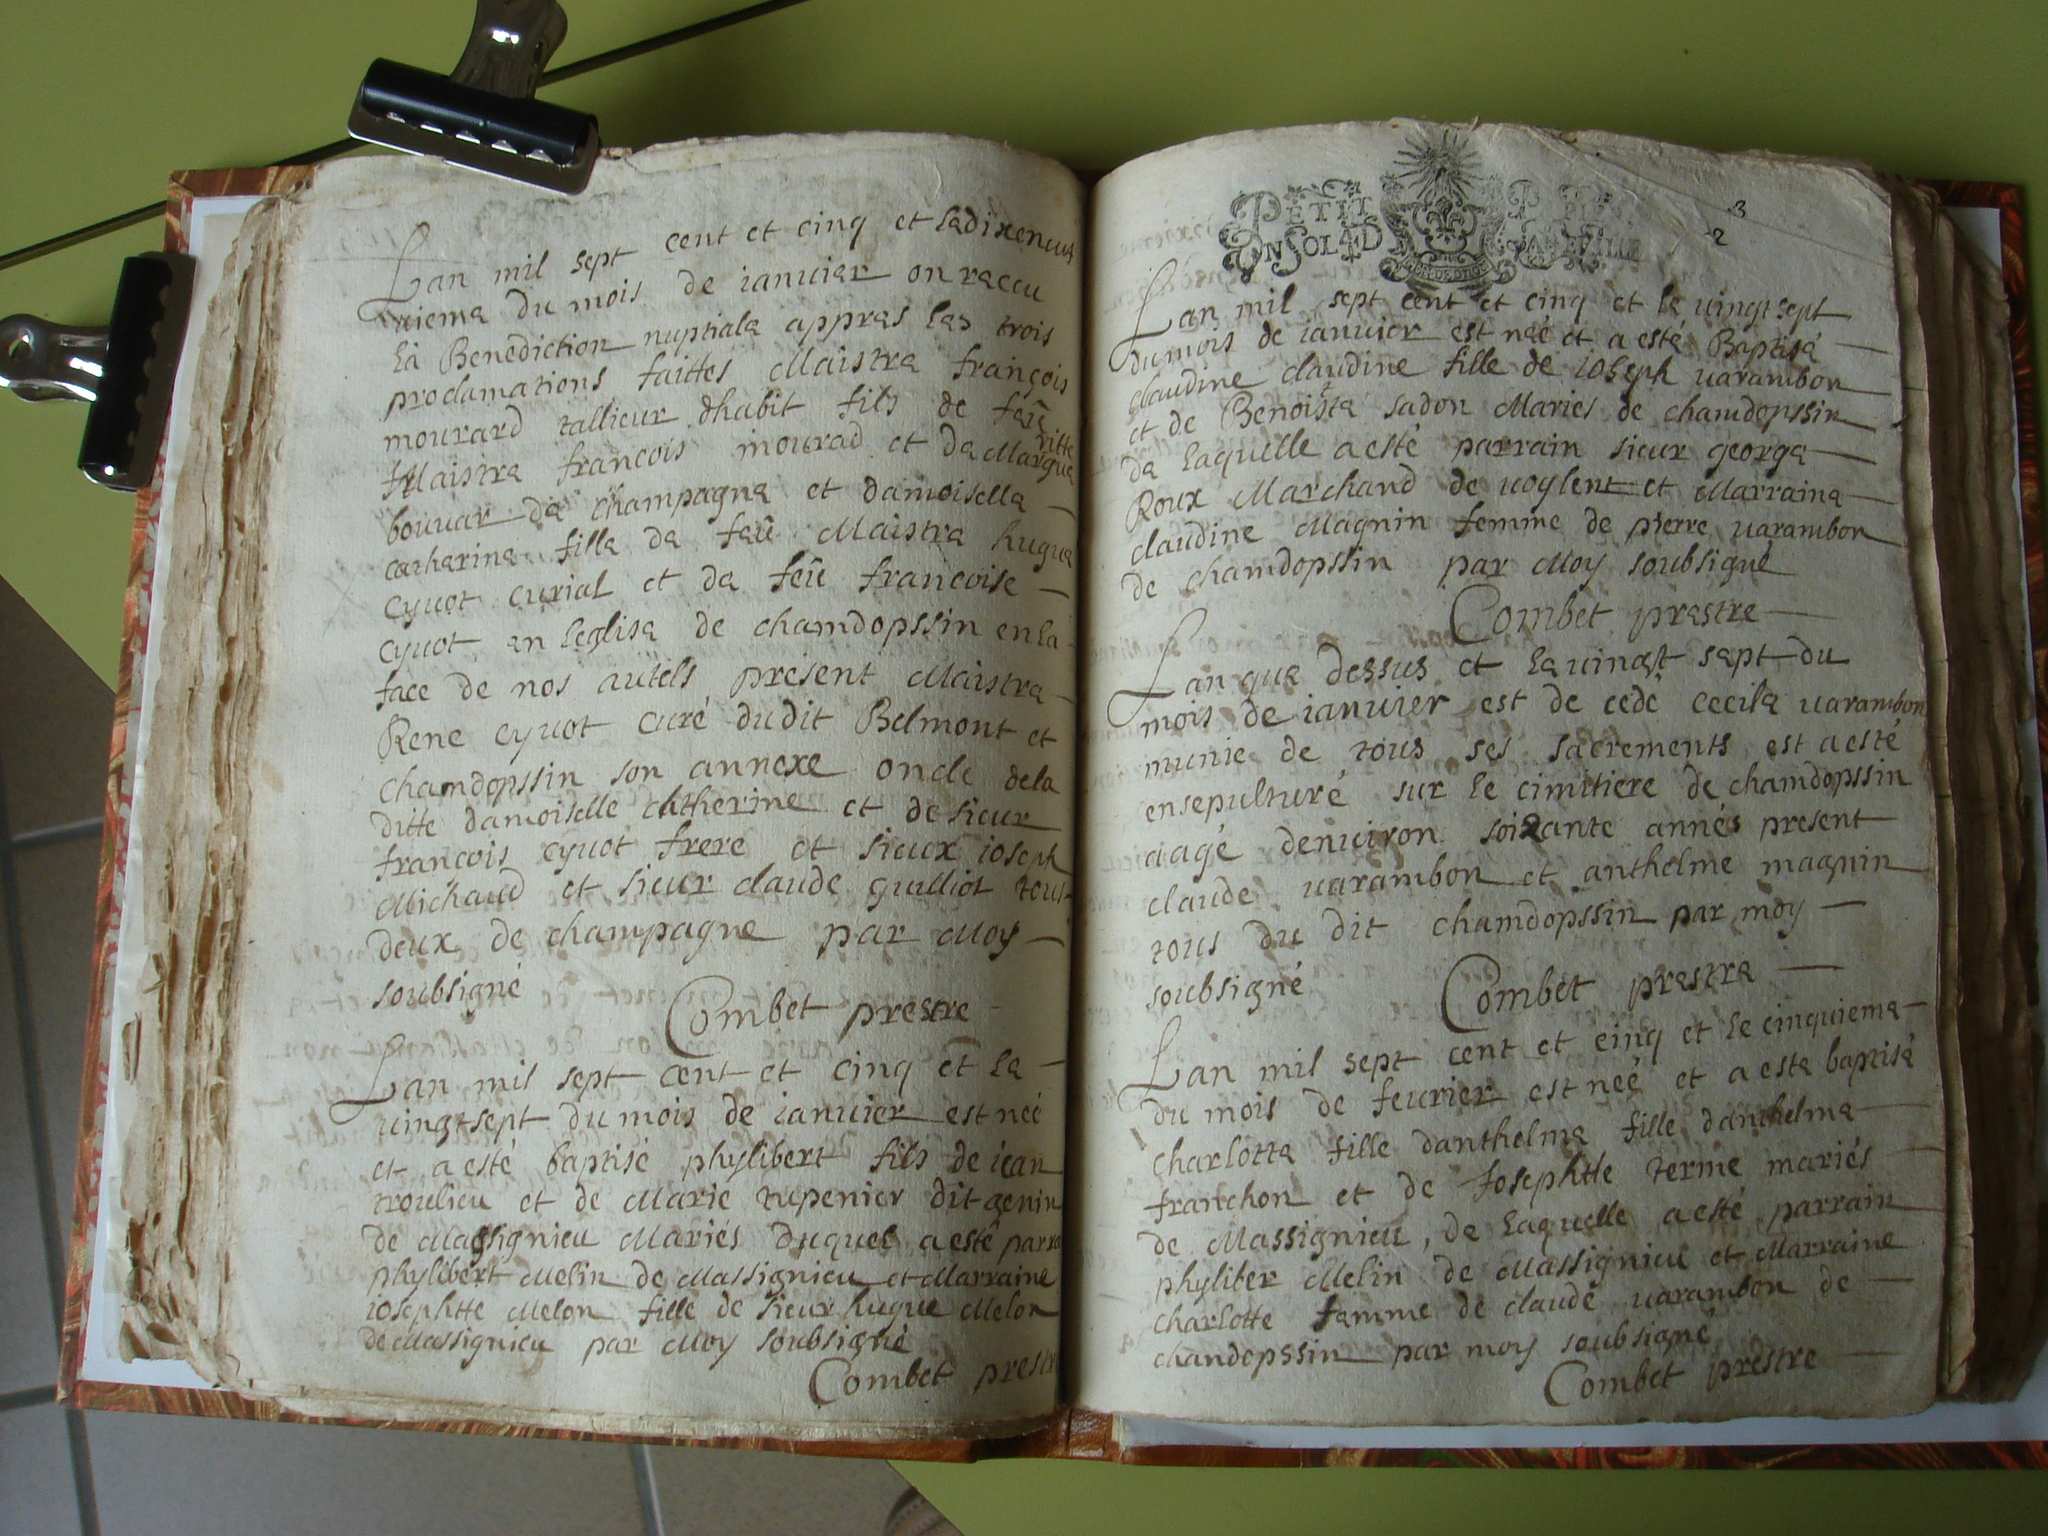 Lan mil sept cent et cinq et le dixeneuf
viema du mois de ianvier on raccu
la Benediction nuptiala appras las trois
proclamations faittes Maistra françois
mourard tallieur dhabit fils de feû
Maistra francois mourad et da Margue
ritte
bouvar da champagna et damoisella
catharina filla da feû Maistra hugua
cyvot curial et da feûe francoise
cyvot en leglisa de chamdopssin en la
face de nos autels présent Maistra
Rene cyvot curé dudit Belmont et
chamdopssin son annexe oncle dela
ditte damoiselle catherine et de sieur
francois cyvot frere et sieux ioseph
Michaud et sieur claude guilliot tous
deux de champagne par Moy
soubsigné
Combet prestre
Lan mil sept cent et cinq et la
vingtsept du mois de ianvier est néé
et a esté baptisé phylibert fils de iean
troulieu et de Marie tupenier dit genin
de Massignieu Mariés duquel a esté parra
phylibert Melin de Massignieu et Marraine
iosephtte Melon fille de sieur hugue Melon
de Massignieu par Moy soubsigné
Combet prestr
PETIT
EN SOL 4 D
3
2
Lan mil sept cent et cinq et le vingt sept
du mois de ianvier est néé et a esté Baptisé
claudine claudine fille de ioseph varambon
et de Benoista sadon Mariés de chamdopssin
da laquelle a esté parrain sieur georga
Roux Marchand de voylent et Marraina
claudine Magnin femme de pierre varambon
de chamdopssin par Moy soubsigné
Combet prastre
Lan qua dessus et la vingt sept du
mois de ianvier est de cedé cecila varambon
munie de tous ses sacrements est a esté
ensepulturé sur le cimitiere de chamdopssin
aagé denviron soixante annés present
claude varambon et anthelme magnin
tous du dit chamdopssin par moy
soubsigné
Combet prastra
Lan mil sept cent et cinq et le cinquiema
du mois de feurier est néé et a esta baptisé
charlotta fille danthelma fille danthelma
franchon et de Josephtte terme mariés
de Massignieu, de laquelle a esté parrain
phyliber Melin de Massignieu et Marraine
charlotte femme de claude varambon de
chandopssin par moy soubsigné
Combet prestre